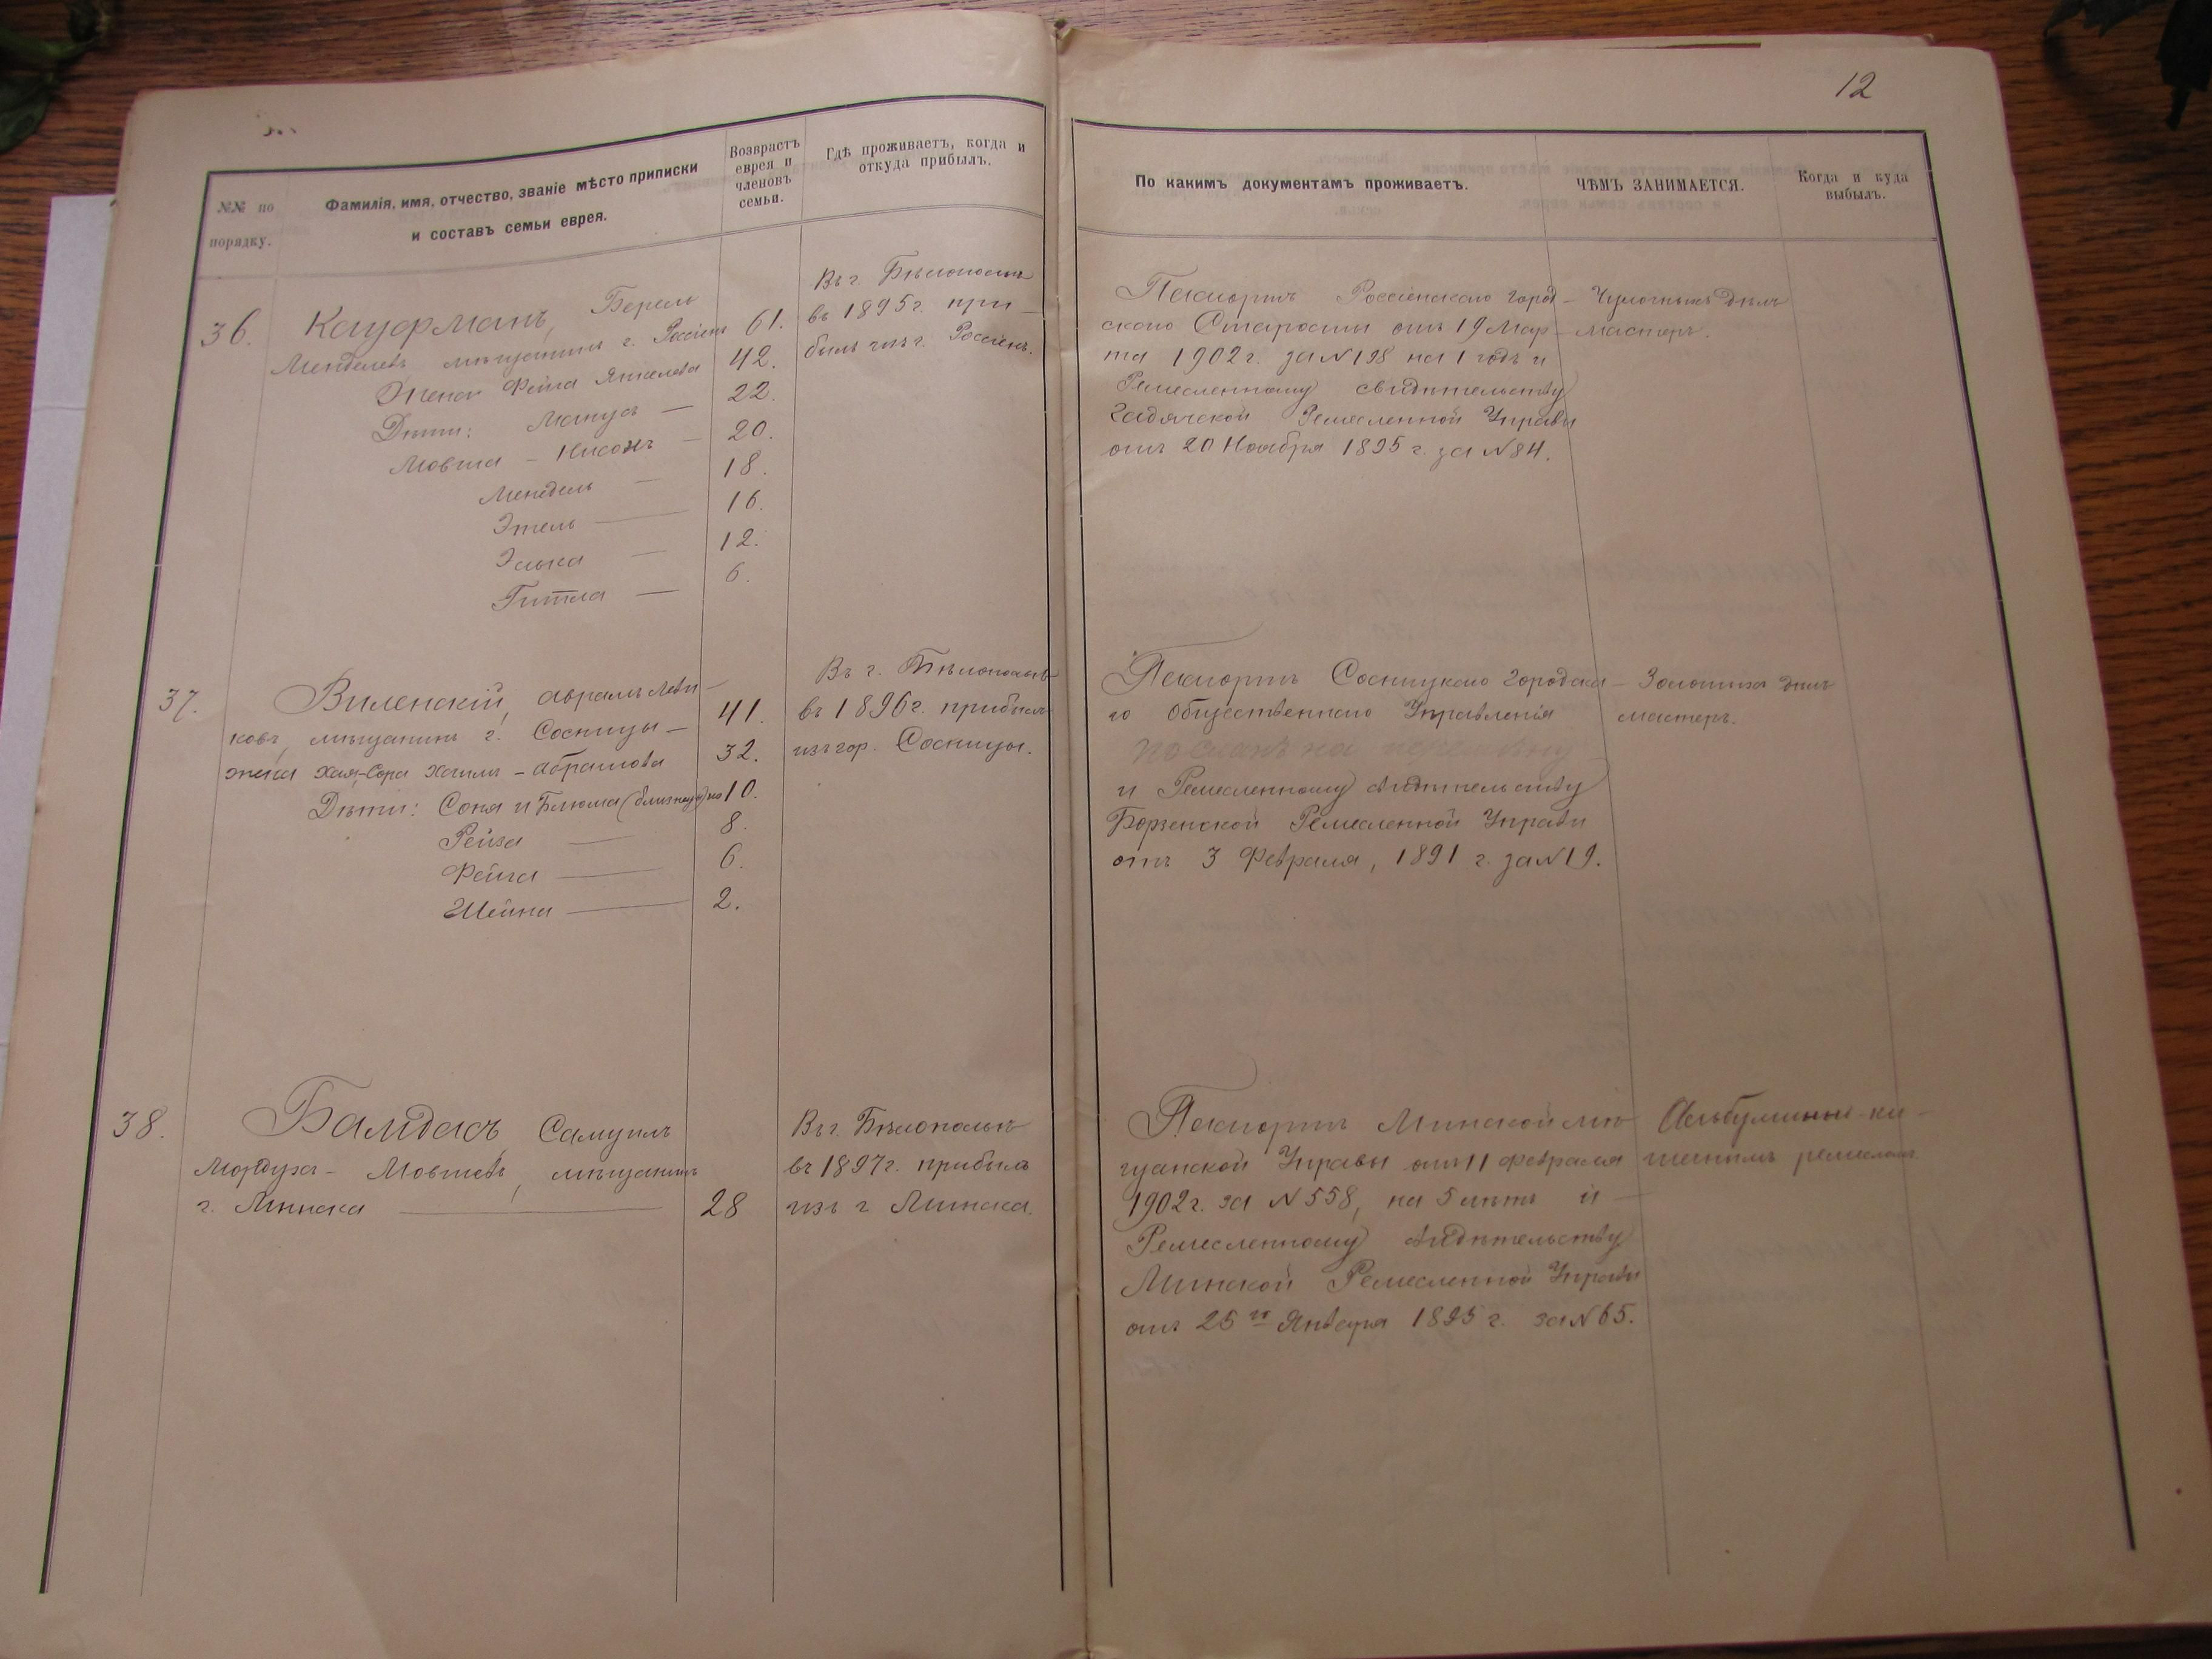 12
№№ по
порядку.
Фамилія, имя, отчество, званіе мѣсто приписки
и составъ семьи еврея.
Возврастъ
еврея и
членовъ
семьи.
Гдѣ проживаетъ, когда и
откуда прибылъ.
По какимъ документамъ проживаетъ.
ЧѢМЪ ЗАНИМАЕТСЯ.
Когда и куда
выбылъ.
36.
Кауфманъ, Берель
Менделевъ, мѣщанинъ г. Россіенъ 61.
Жена Фейга Янкелева 42.
Дѣти: Манусъ — 22.
Мовша - Нисонъ — 20.
Мендель — 18.
Этель — 16.
Элька — 12.
Гитла — 6.
Въ г. Бѣлопольѣ
въ 1895 г. при
былъ изъ г. Россіенъ.
Паспортъ Россіенскаго город-
скаго Старосты отъ 19 Мар-
та 1902 г. за № 198 на 1 годъ и
Ремесленному свидѣтельству
Гадячской Ремесленной Управы
отъ 20 Ноября 1895 г. за № 84.
дѣлъ
мастеръ.
37.
Виленскій, Абрамъ Леви-
ковъ, мѣщанинъ г. Сосницы — 41.
жена Хая-Сора - Абрамова 32.
Дѣти: Соня и Блюма (близнецы) по 10.
Рейза — 8.
Фейга — 6.
Шейна — 2.
Въ г. Бѣлопольѣ
въ 1896 г. прибылъ
изъ гор. Сосницы.
Паспортъ Сосницкаго Городска-
го Общественнаго Управленія
посланъ на
и Ремесленному свидѣтельству
Борзенской Ремесленной Управы
отъ 3 Февраля, 1891 г. за № 19.
Золотыхъ дѣлъ
мастеръ.
38.
Бамдасъ, Самуилъ
Мордуха - Мовшевъ, мѣщанинъ
г. Минска — 28
Въ г. Бѣлопольѣ
въ 1897 г. прибылъ
изъ г. Минска.
Паспортъ Минской мѣ-
щанской Управы отъ 11 Февраля
1902 г. за № 558, на 5 лѣтъ и —
Ремесленному свидѣтельству
Минской Ремесленной Управы
отъ 25го Января 1895 г. за № 65.
ремесломъ.